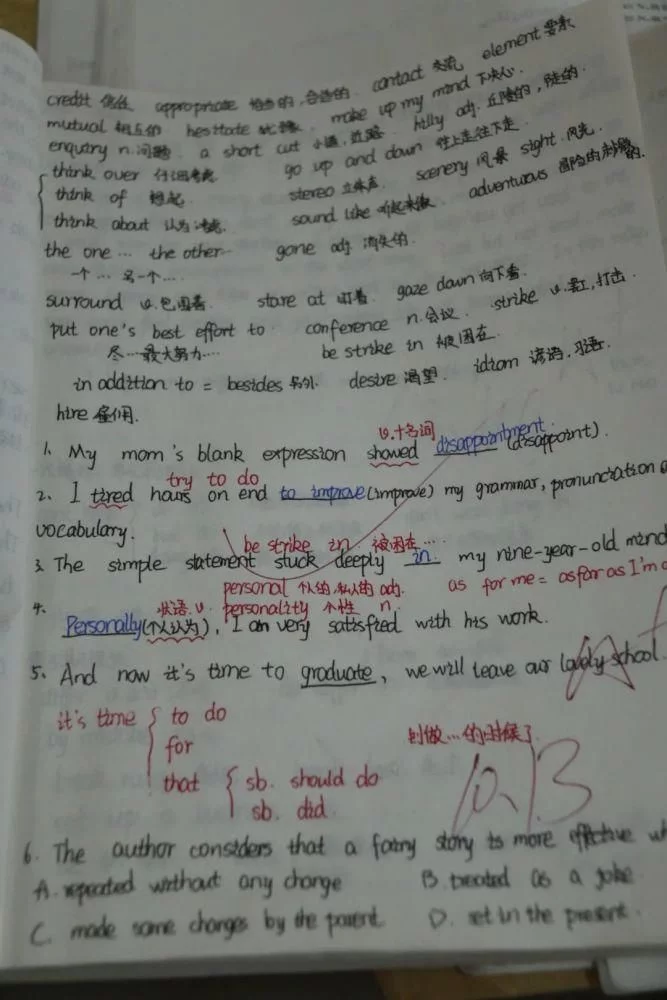 credit 信任 appropriate 恰当的,合适的. contact 交流 element 要素
mutual 相互的 hesitate 犹豫. make up my mind 下决心.
enquiry n.问题. a short cut 小道,近路. hilly adj. 丘陵的,陡的.
think over 仔细考虑 go up and down 往上走往下走.
think of 想起 stereo 立体声. scenery 风景 sight.风光.
think about 认为 考虑. sound like 听起来像 adventurous 冒险的
the one … the other… gone adj. 消失的.
一个 … 另一个 ….
surround v.包围着. stare at 盯着. gaze down 向下看.
put one's best effort to conference n.会议. strike v. 打击.
尽…最大努力…. be strike in 被困在.
in addition to = besides 另外. desire 渴望. idiom 谚语,习语.
hire 雇佣.
v.+名词
1. My mom's blank expression showed disappointment (disappoint).
try to do
2. I tired hours on end to improve(improve) my grammar, pronunciation
vocabulary.
be strike in 被困在…
3. The simple statement stuck deeply in my nine-year-old mind
personal 个人的,私人的 adj. as for me = as far as I'm
状语. v. personality 个性 n.
4. Personally(个人认为), I am very satisfied with his work.
5. And now it's time to graduate, we will leave our lovely school.
it's time to do 到做…的时候了
for
that sb. should do
sb. did
6. The author considers that a fairy story is more effective
A. repeated without any change B. treated as a joke
C. made some changes by the parent D. set in the present.